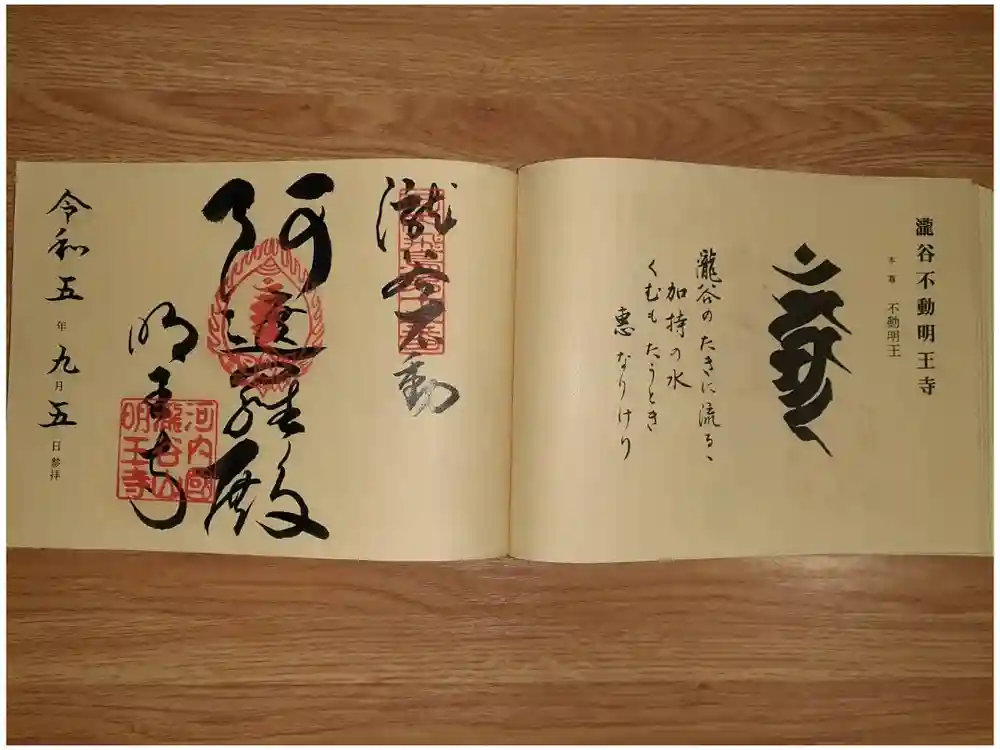 瀧谷不動明王寺
本尊 不動明王
瀧谷のたきに流るゝ
加持の水
くむもたうとき
恵なりけり
瀧谷不動
阿遮羅殿
明王寺
河内國
瀧谷山
明王寺
令和五年九月五日参拝